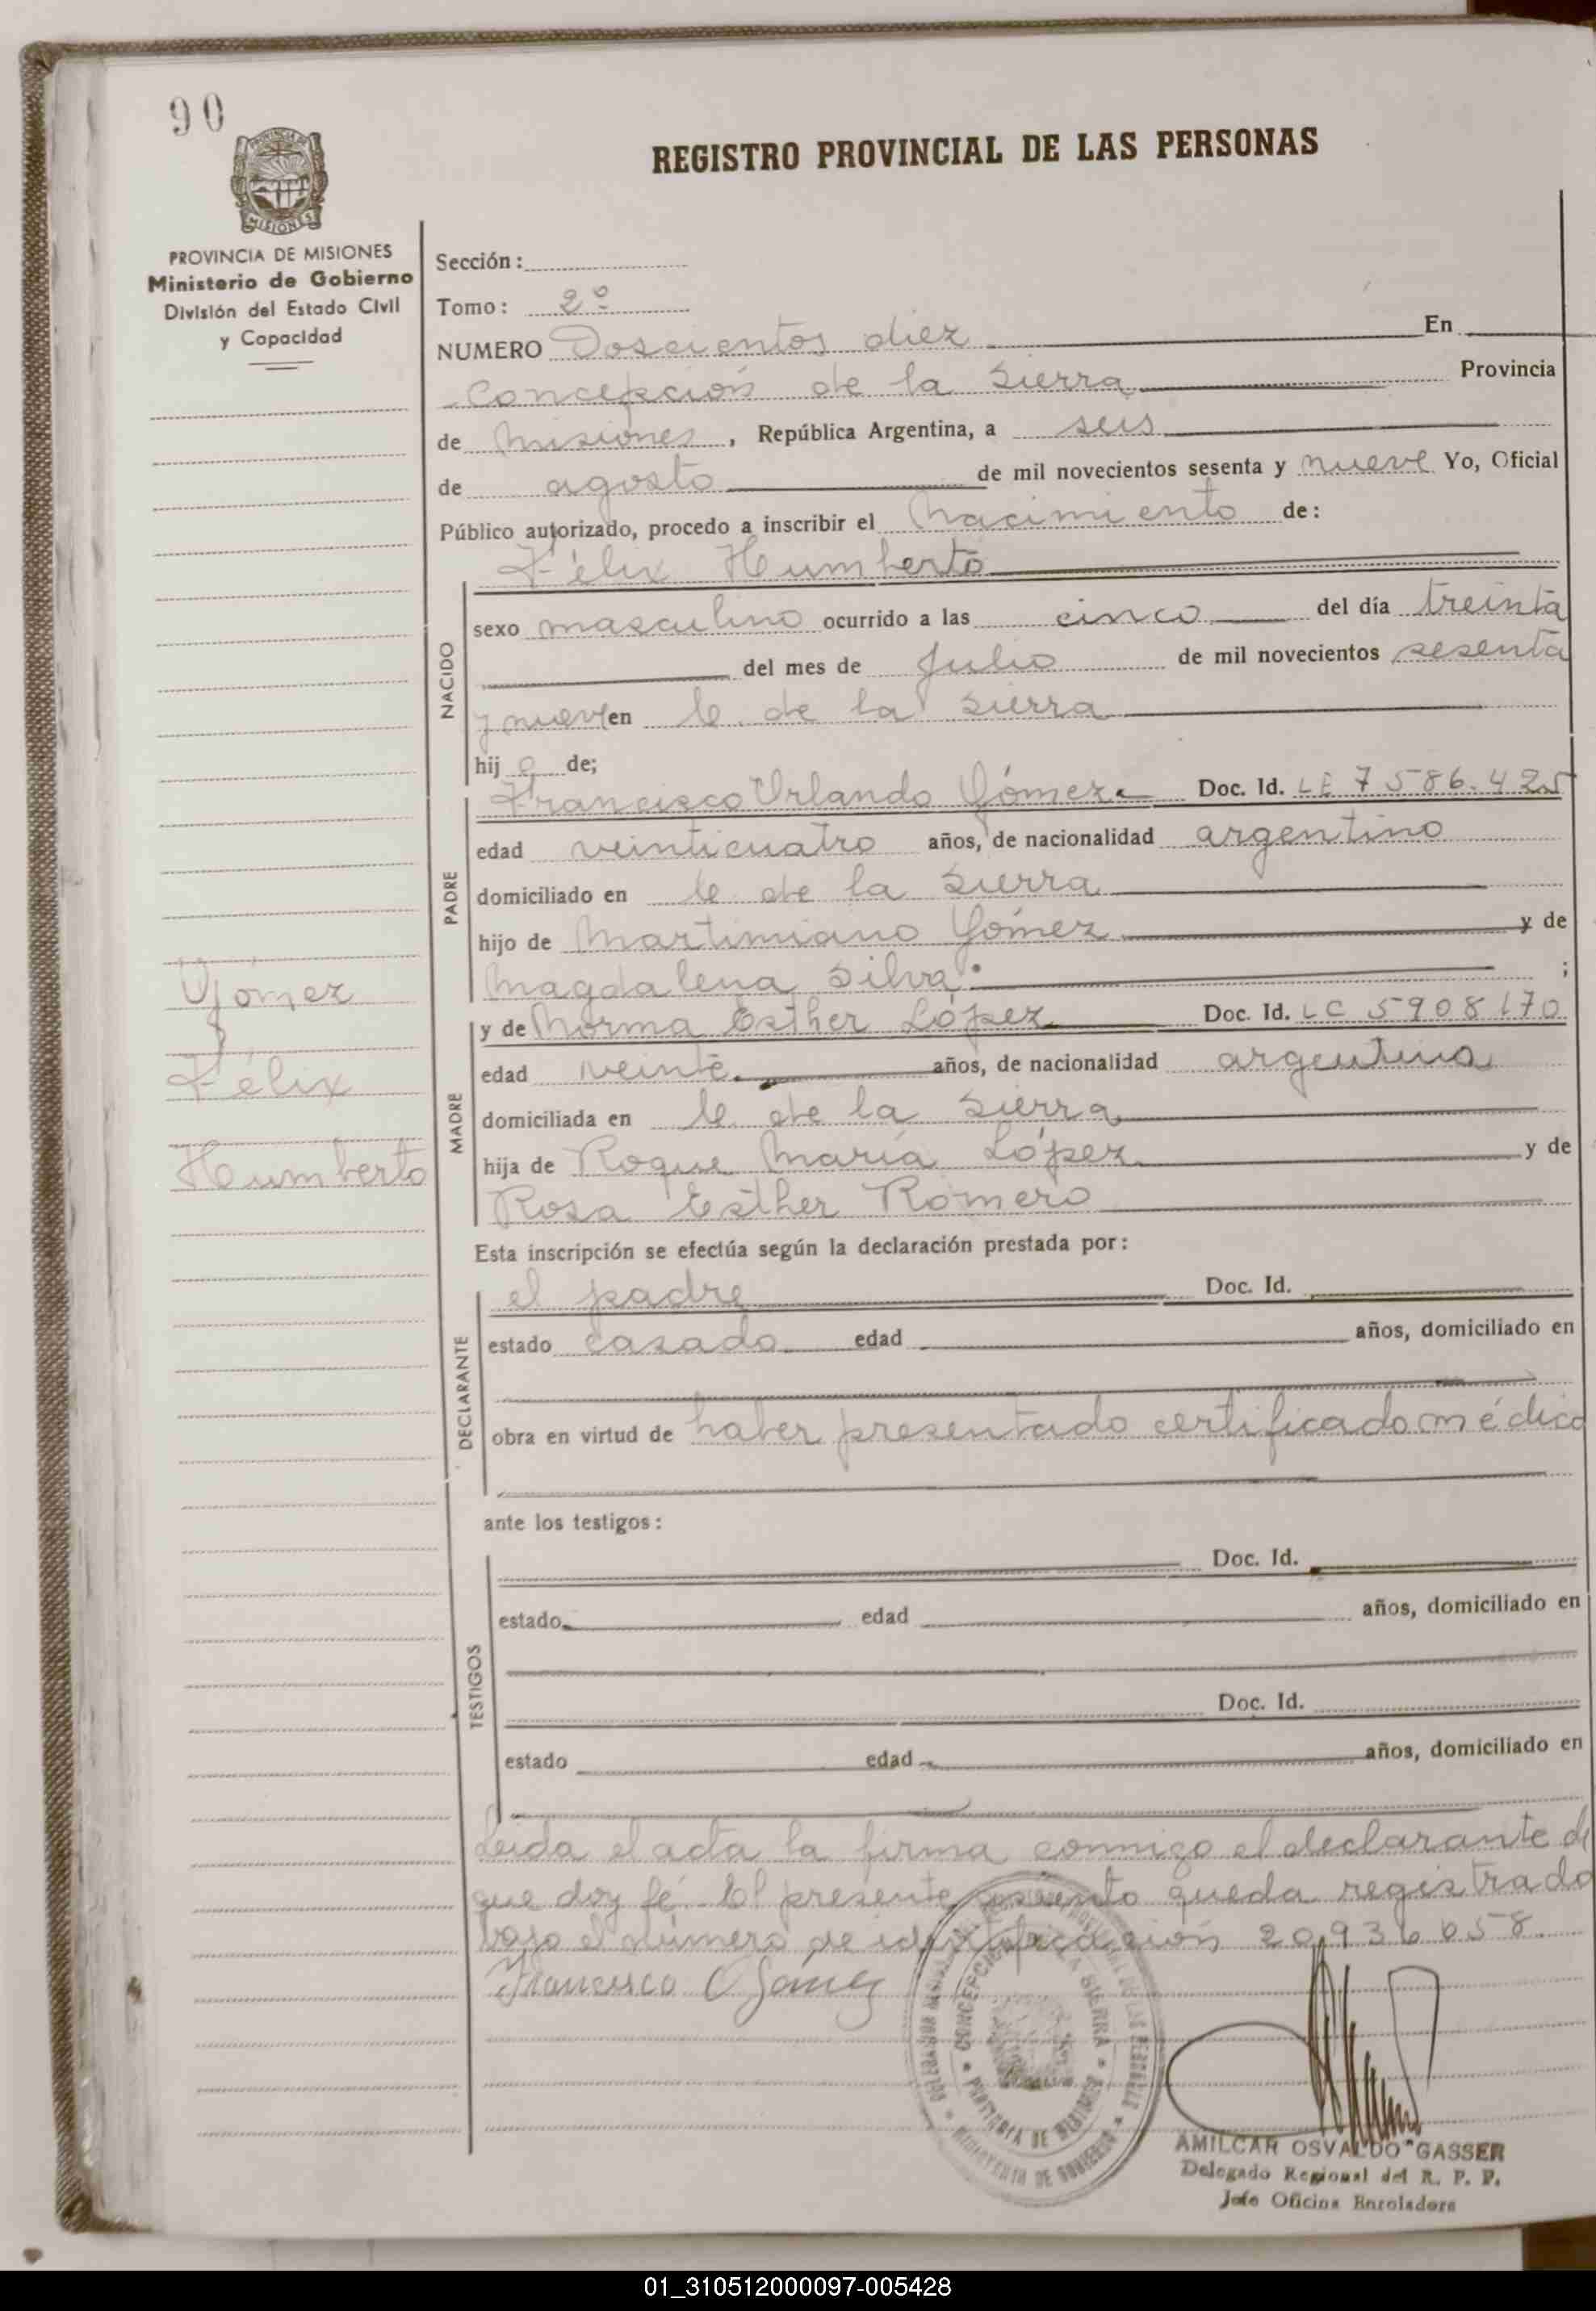 90
REGISTRO PROVINCIAL DE LAS PERSONAS
PROVINCIA DE MISIONES
MISIONES
PROVINCIA DE MISIONES
Ministerio de Gobierno
División del Estado Civil
y Capacidad
Sección:
Tomo: 2º
NUMERO Doscientos diez En
Concepción de la Sierra Provincia
de Misiones, República Argentina, a seis
de agosto de mil novecientos sesenta y nueve Yo, Oficial
Público autorizado, procedo a inscribir el Nacimiento de:
Félix Humberto
NACIDO
sexo masculino ocurrido a las cinco del día treinta
del mes de Julio de mil novecientos sesenta
y nueve en C. de la Sierra
hij o de;
PADRE
Francisco Orlando Gómez Doc. Id. LE 7586.425
edad veinticuatro años, de nacionalidad argentino
domiciliado en C. de la Sierra
hijo de Martimiano Gómez y de
Magdalena Silva ;
Gómez
Félix
Humberto
MADRE
y de Norma Esther López Doc. Id. LC 5908170
edad veinte años, de nacionalidad argentina
domiciliada en C. de la Sierra
hija de Roque María López y de
Rosa Esther Romero
Esta inscripción se efectúa según la declaración prestada por:
DECLARANTE
el padre Doc. Id.
estado casado edad años, domiciliado en
obra en virtud de haber presentado certificado médico
ante los testigos:
TESTIGOS
Doc. Id.
estado edad años, domiciliado en
Doc. Id.
estado edad años, domiciliado en
Leída el acta la firma conmigo el declarante de
que doy fé. El presente asiento queda registrado
bajo el número de identificación 20.936.058.
Francisco O Gómez
CONCEPCION DE LA SIERRA
PROVINCIA DE MISIONES
MINISTERIO DE GOBIERNO
AMILCAR OSVALDO GASSER
Delegado Regional del R. P. P.
Jefe Oficina Enroladora
01_310512000097-005428